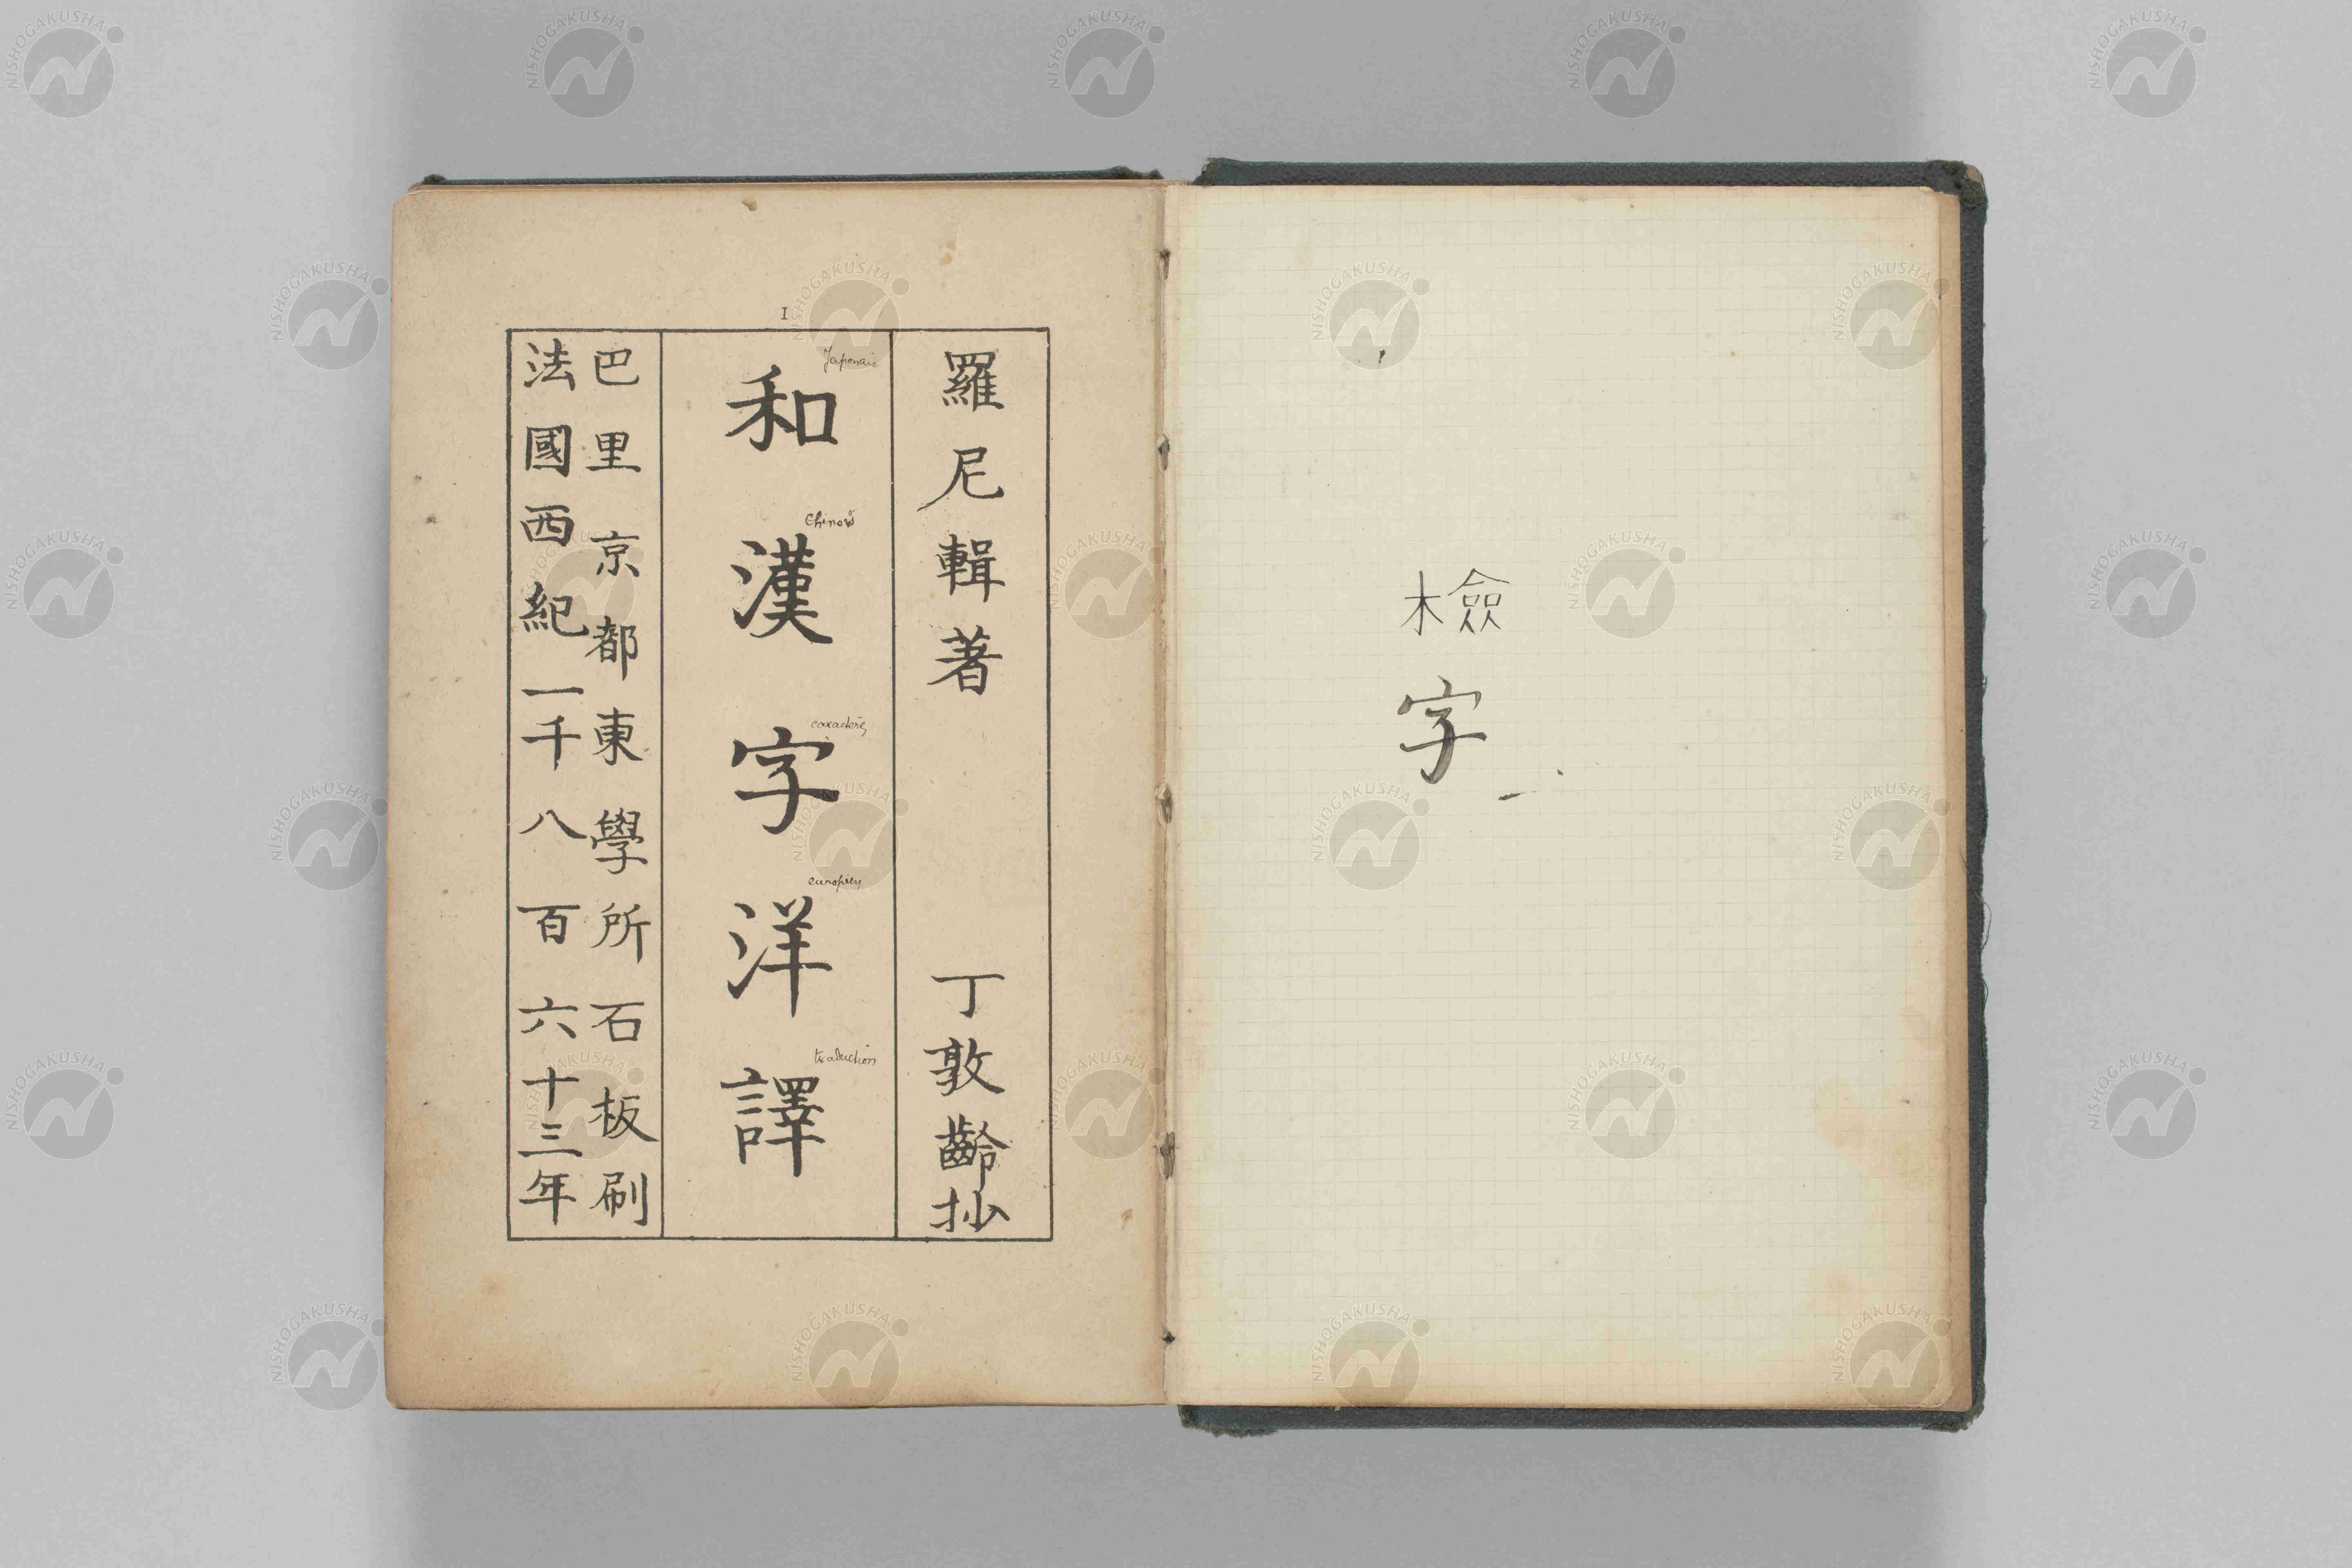 檢字
I
羅尼輯著 丁敦齡抄
和漢字洋譯
Japonais
Chinois
caractères
européen
traduction
巴里京都東學所石板刷
法國西紀一千八百六十三年
NISHOGAKUSHA